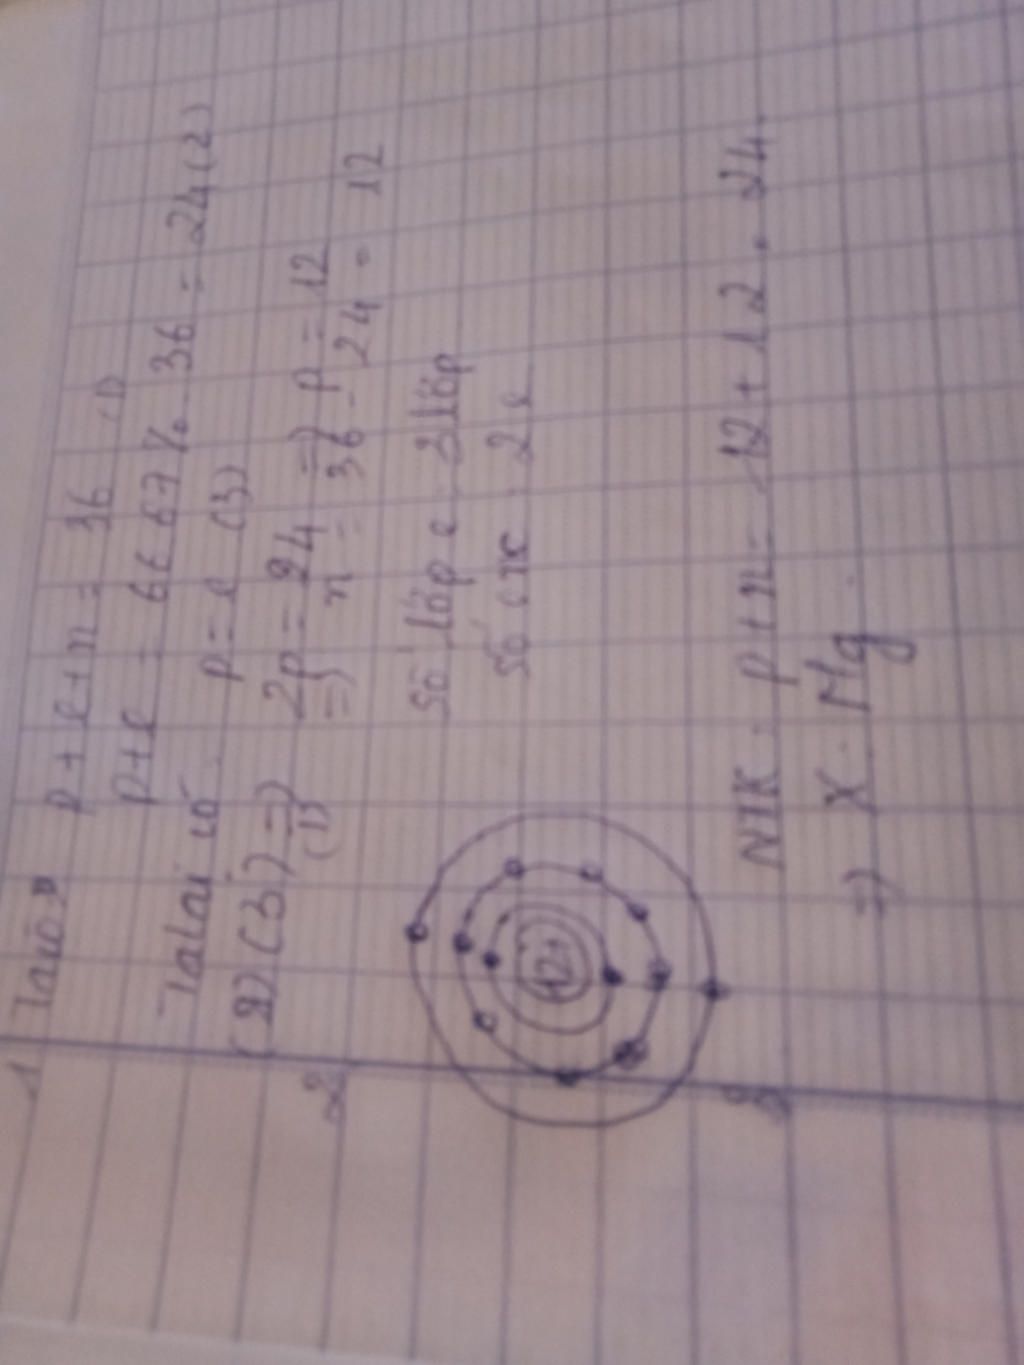 1 Ta có: p + e + n = 36 (1)
p + e = 66 67 %. 36 = 24 (2)
Ta lại có: p = e (3)
(2) (3) => 2p = 24 => p = 12
(1) => n = 36 - 24 = 12
2
Số lớp e: 3 lớp
Số e nc: 2e
12+
3 NTK: p + n = 12 + 12 = 24.
=> X: Mg